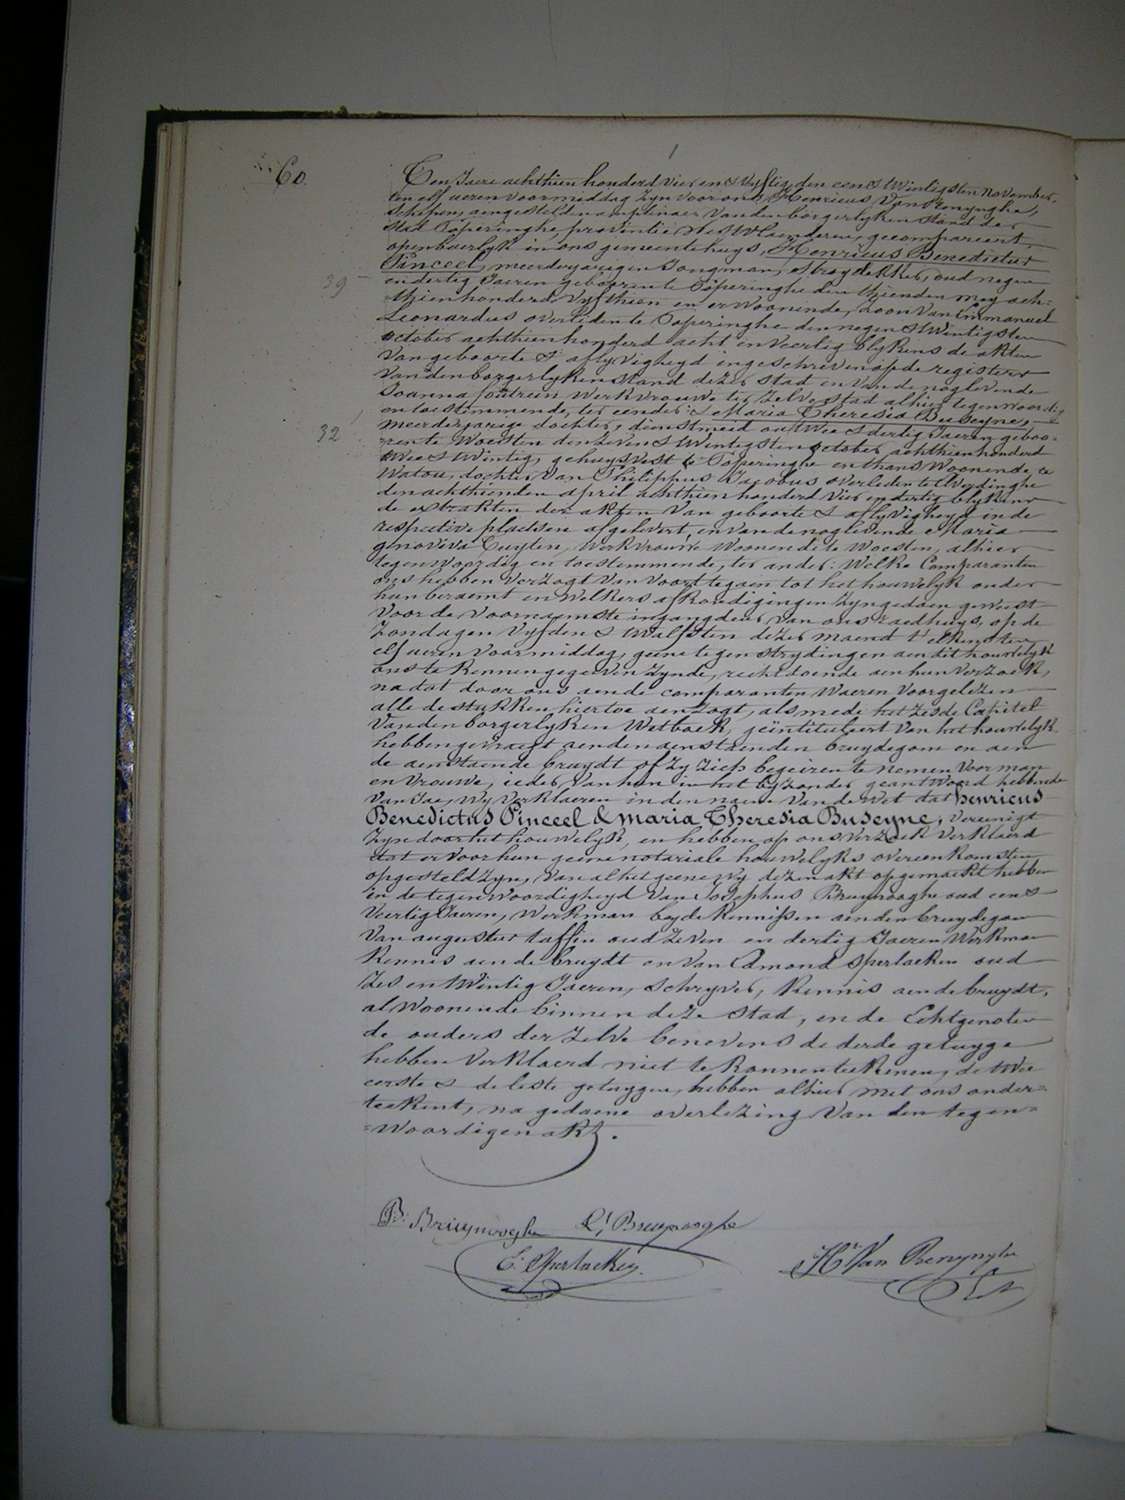 60.
Ten Jaere achthien honderd vier en vyftig den een & twintigsten November,
ten elf ueren voormiddag zyn voor ons Henricus Van Renynghe,
schepen, aengesteld n amptenaer van den borgerlyken stand der
stad Poperinghe, provintie Westvlaenderen, gecompareert
openbaerlyk in ons gemeentehuys, Henricus Benedictus
Pinceel, meerderjarigen Jongman, stroydekker, oud negen
39
en dertig Jaeren geboren te Poperinghe den thienden mey ach-
thien honderd vyfthien en er woonende, zoon van Emmanuel
Leonardus overleden te Poperinghe den negen & twintigsten
october achthien honderd acht en veertig blykens de akten
van geboorte & aflyvigheyd ingeschreven op de registers
van den borgerlyken stand dezer stad en van de noglevende
Joanna Joutrein werkvrouwe ter zelve stad alhier tegenwoordig
en toestemmende, ter eender: & Maria Theresia Buseyne,
32
meerderjarige dochter, dienstmeid out twee & dertig Jaeren geboo-
ren te Woesten den zeven & twintigsten october achthien honderd
twee & twintig, gehuysvest te Poperinghe en thans woonende te
Watou, dochter van Philippus Jacobus overleden te Elverdinghe
den achthienden april achthien honderd vier en dertig blykens
de extrakten der akten van geboorte & aflyvigheyd in de
respective plaetsen afgelevert, en van de noglevende Maria
Genoviva Cuyten, werkvrouwe woonende te Woesten, alhier
tegenwoordig en toestemmende, ter ander: Welke Comparanten
ons hebben verzogt van voort te gaen tot het houwelyk onder
hun beraemt en welkers afkondigingen zyn gedaen geweest
voor de voornaemste ingangdeur van ons raedhuys, op de
Zondagen vyfden & twalfsten dezer maend t'elkens ten
elf ueren voormiddag, geene tegenstrydingen aen dit houwelyk
ons te kennen gegeven zynde, recht doende aen hun verzoek,
na dat door ons aen de comparanten waeren voorgelezen
alle de stukken hiertoe aenzogt, als mede het zesde Capitel
van den borgerlyken Wetboek, geïntituleert van het houwelyk
hebben gevraegt aen den aenstaenden bruydegom en aen
de aenstaende bruydt of zy zich begeiren te nemen voor man
en vrouwe, ieder van hun in het byzonder geantwoord hebbende
van Jae, wy verklaeren in den name van de Wet dat Henricus
Benedictus Pinceel & Maria Theresia Buseyne, vereenigt
zyn door het houwelyk, en hebben op ons verzoek verklaerd
dat er voor hun geene notariale houwelyks overeenkomsten
opgesteld zyn, van al het geene wy dezen akt opgemaekt hebben
in de tegenwoordigheyd van Josephus Bruynooghe oud een &
veertig Jaeren, werkman beyde kennissen aen den bruydegom
van augustus taffin oud zeven en dertig Jaeren werkman
kennis aen de bruydt en van Edmond Sperlaeken oud
zes en twintig Jaeren, schryver, kennis aen de bruydt,
al woonende binnen deze stad, en de Echtgenoten
de ouders der zelve benevens de derde getuyge
hebben verklaerd niet te konnen teekenen, de twee
eerste & de leste getuygen, hebben alhier met ons onder=
teekent, na gedaene overlezing van den tegen=
=woordigen akt.
B. Bruynooghe L. Bruynooghe
E. Sperlaeken
Hri Van Renynghe